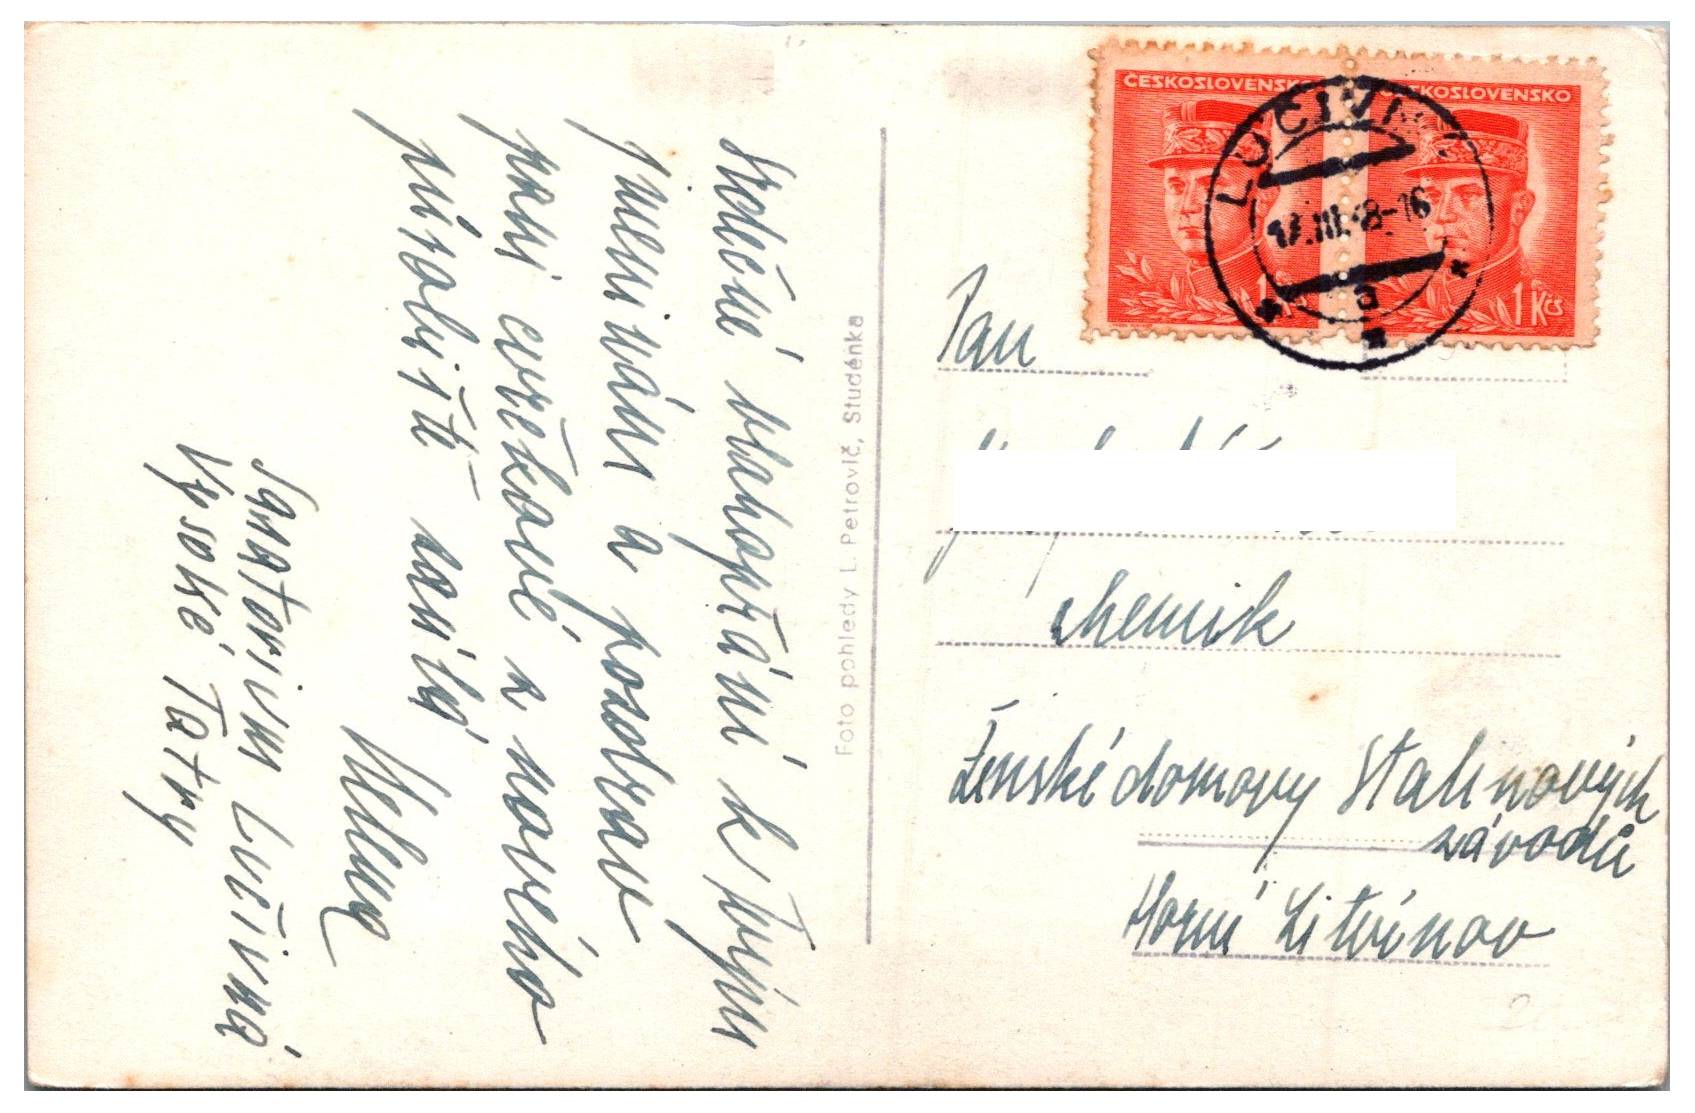 Srdečné blahopřání k tvým
jmeninám a pozdrav
paní cvrčkové z nového
působiště zasílá
Milena
Sanatorium Lučivná
Vysoké Tatry
Foto pohledy L. Petrovič, Studénka
ČESKOSLOVENSKO
ČESKOSLOVENSKO
1 Kčs
LUČIVNÁ
.III.48-16
a
Pan
chemik
Ženské domovy Stalinových
závodů
Horní Litvínov